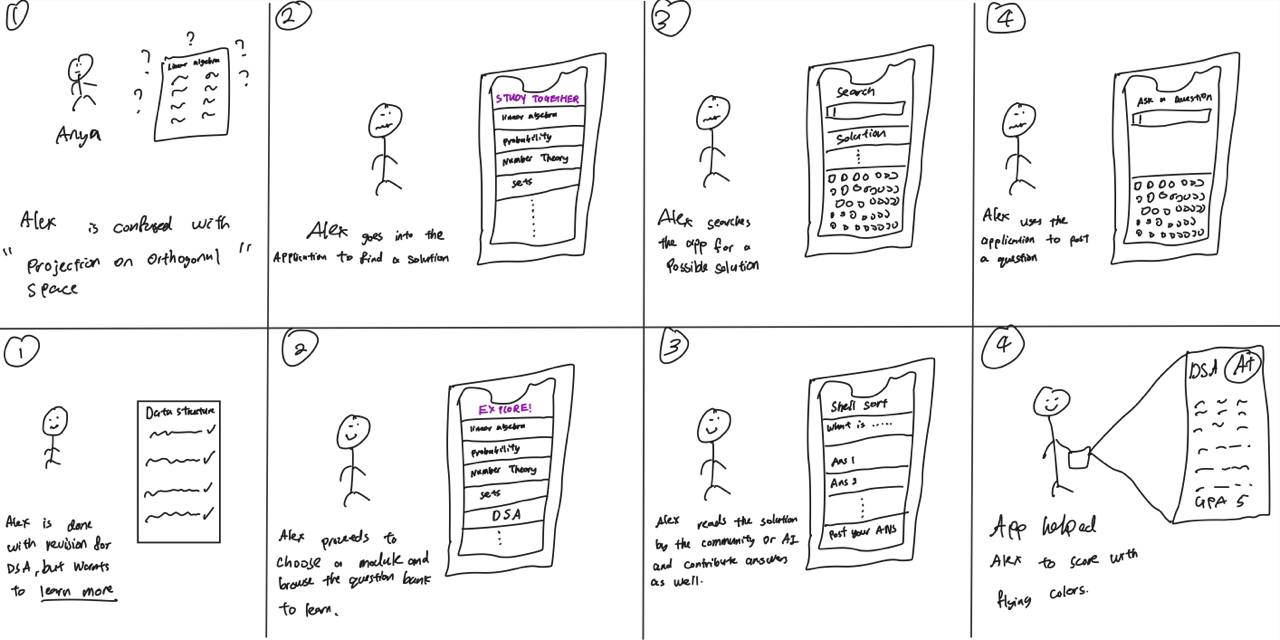 1
?
?
?
?
?
?
Linear algebra
Anya
Alex is confused with
"Projection on Orthogonal"
space
2
STUDY TOGETHER
linear algebra
probability
Number Theory
sets
Alex goes into the
Application to find a solution
3
Search
Solution
Alex searches
the app for a
possible solution
4
Ask a Question
Alex uses the
application to post
a question
1
Data structure
Alex is done
with revision for
DSA, but wants
to learn more
2
EXPLORE!
linear algebra
probability
Number Theory
sets
DSA
Alex proceeds to
choose a module and
browse the question bank
to learn.
3
Shell sort
What is .....
Ans 1
Ans 2
Post your ANS
Alex reads the solution
by the community or AI
and contribute answers
as well.
4
DSA A+
GPA 5
App helped
Alex to score with
flying colors.